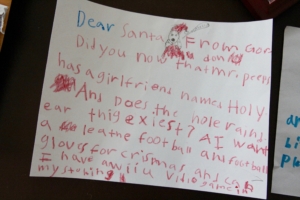 Dear Santa From Gord
Did you now don that mr. peers
has a girlfriend names Holy
And Does the hole rains
ear thig exiest? A I want
a leathe football and football
gloves for crismas and can
I have a wii u video game in
my stoking